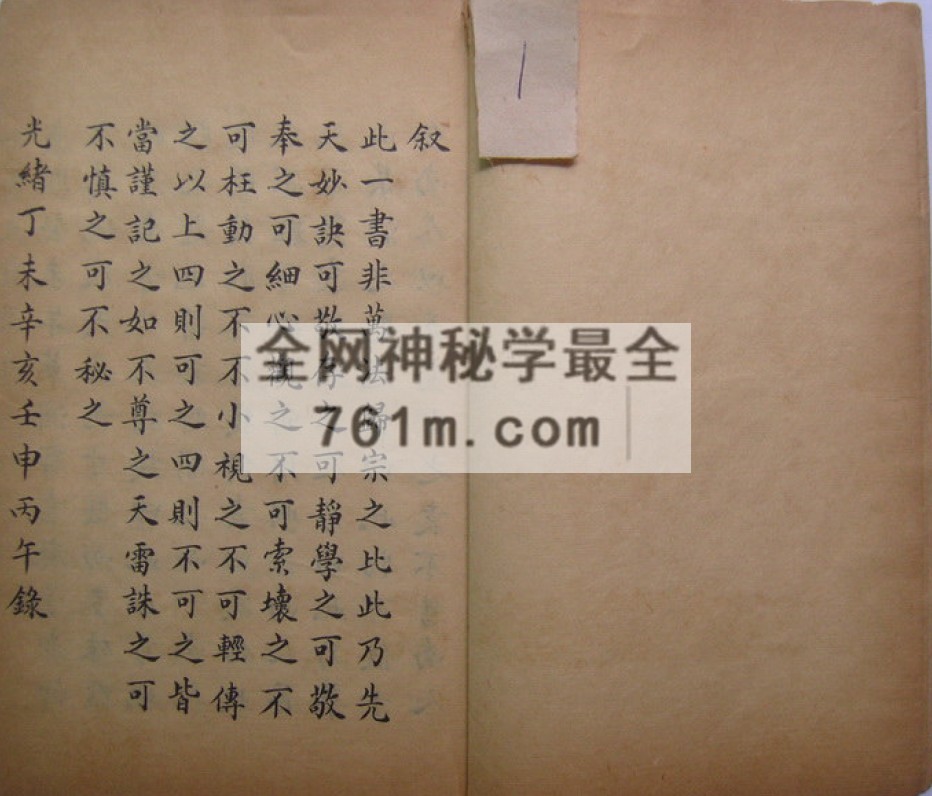 叙
此一書非萬法歸宗之比此乃先
天妙訣可敬存之可靜學之可敬
奉之可細心觀之不可索壞之不
可枉動之不不小視之不可輕傳
之以上四則可之四則不可之皆
當謹記之如不尊之天雷誅之可
不慎之可不秘之
光緒丁未辛亥壬申丙午錄
1
全网神秘学最全
761m.com